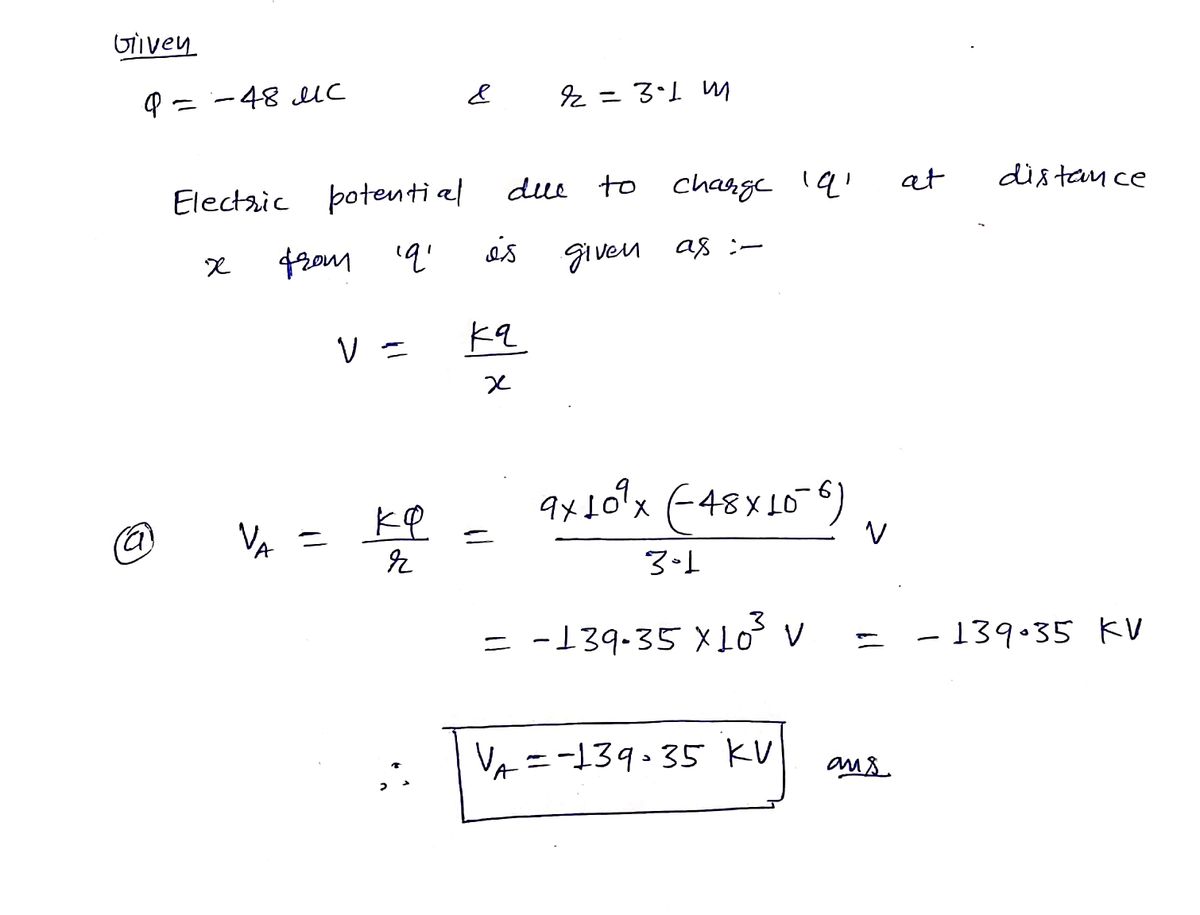 Given
Q = -48 μC & r = 3.1 m
Electric potential due to charge 'q' at distance
x from 'q' is given as :-
V = kq/x
(a) VA = kQ/r = 9×10^9×(-48×10^-6)/3.1 V
= -139.35 ×10^3 V = -139.35 KV
∴ VA = -139.35 KV ans